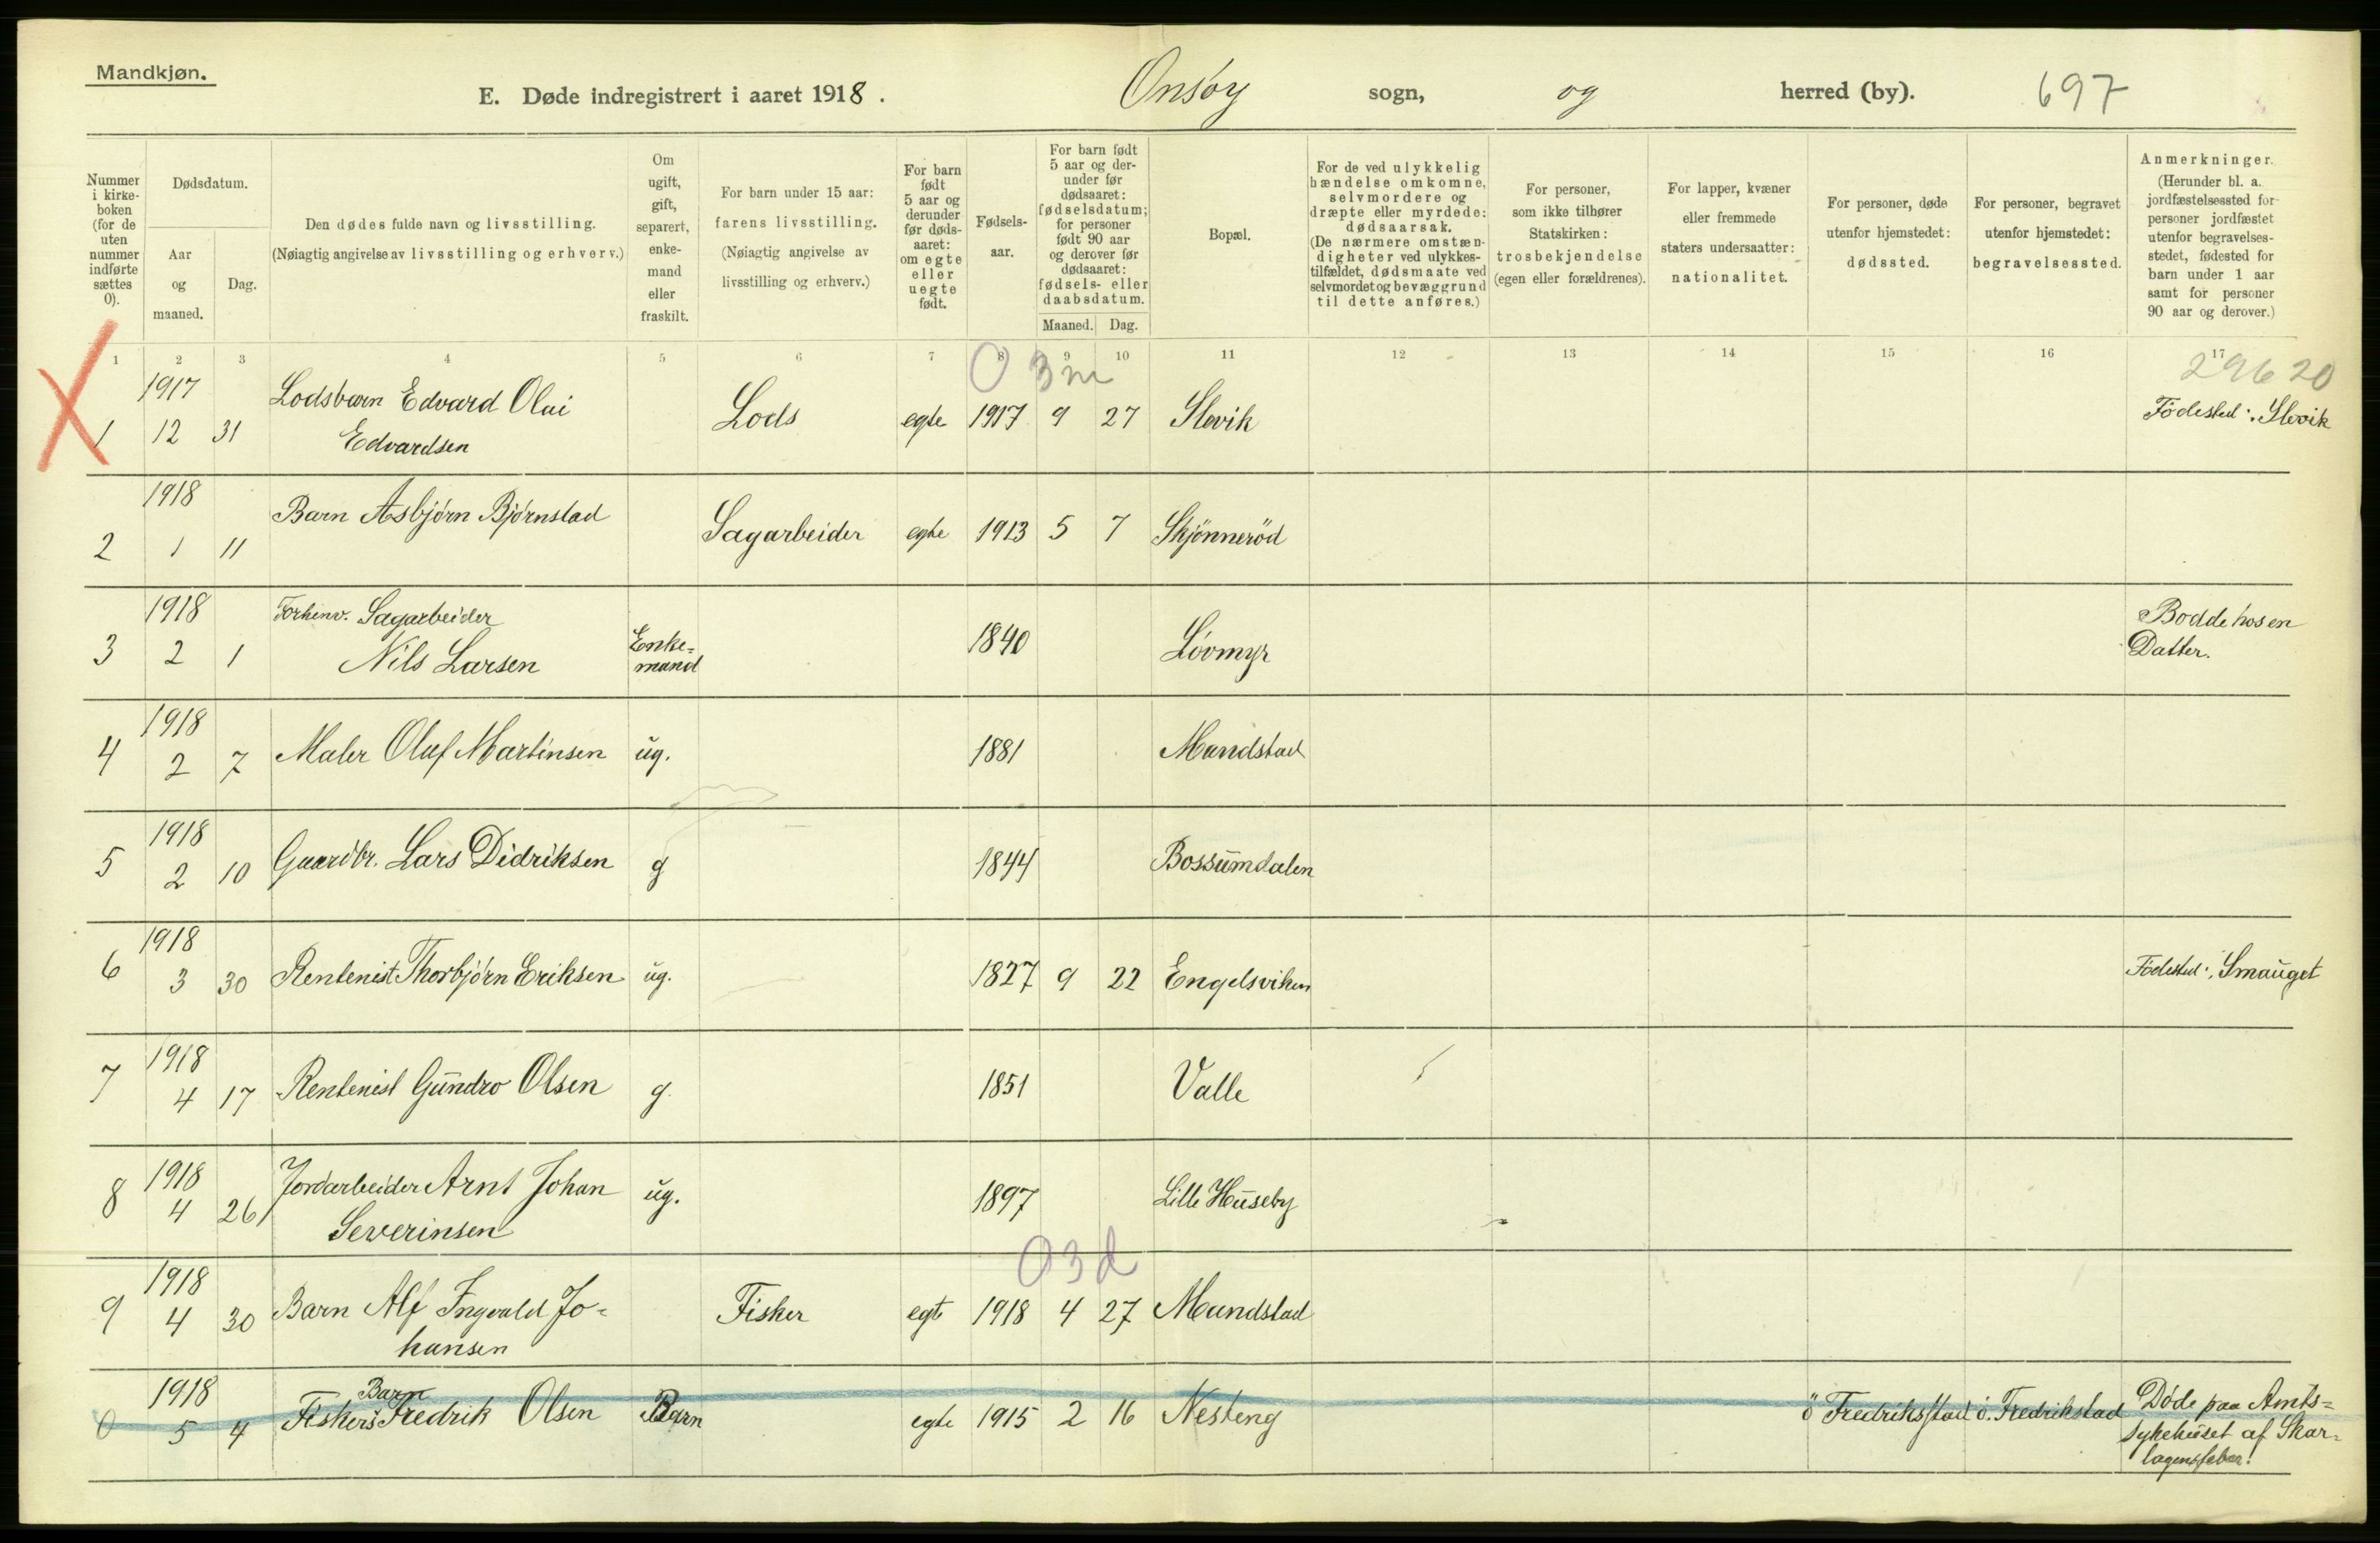 Mandkjøn.
E. Døde indregistrert i aaret 1918. Onsöy sogn, og herred (by). 697
Nummer i kirke-boken (for de uten nummer indførte sættes 0).
Dødsdatum.
Aar og maaned.
Dag.
Den dødes fulde navn og livsstilling.
(Nøiagtig angivelse av livsstilling og erhverv.)
Om ugift, gift, separert, enke-mand eller fraskilt.
For barn under 15 aar: farens livsstilling. (Nøiagtig angivelse av livsstilling og erhverv.)
For barn født 5 aar og derunder før døds-aaret: om egte eller uegte født.
Fødsels-aar.
For barn født 5 aar og der-under før dødsaaret: fødselsdatum; for personer født 90 aar og derover før dødsaaret: fødsels- eller daabsdatum.
Maaned. Dag.
Bopæl.
For de ved ulykkelig hændelse omkomne, selvmordere og dræpte eller myrdede: dødsaarsak. (De nærmere omstæn-digheter ved ulykkes-tilfældet, dødsmaate ved selvmordet og bevæggrund til dette anføres.)
For personer, som ikke tilhører Statskirken: trosbekjendelse (egen eller forældrenes).
For lapper, kvæner eller fremmede staters undersaatter: nationalitet.
For personer, døde utenfor hjemstedet: dødssted.
For personer, begravet utenfor hjemstedet: begravelsessted.
Anmerkninger. (Herunder bl. a. jordfæstelsessted for personer jordfæstet utenfor begravelses-stedet, fødested for barn under 1 aar samt for personer 90 aar og derover.)
1 2 3 4 5 6 7 8 9 10 11 12 13 14 15 16 17
0 3 m
29620
1917
1 12 31 Lodsbarn Edvard Olai Lods egte 1917 9 27 Slevik Födested: Slevik
Edvardsen
1918
2 1 11 Barn Asbjörn Björnstad Sagarbeider egte 1913 5 7 Skjönneröd
1918 Forhenv. Sagarbeider Bodde hos en
3 2 1 Nils Larsen Enke=mand 1840 Lövmyr Datter.
1918
4 2 7 Maler Oluf Martinsen ug. 1881 Mandstad
1918
5 2 10 Gaardbr. Lars Didriksen g 1844 Bossumdalen
1918
6 3 30 Rentenist Thorbjörn Eriksen ug. 1827 9 22 Engelsviken Födested: Smauget
1918
7 4 17 Rentenist Gundro Olsen g 1851 Valle
1918
8 4 26 Jordarbeider Arnt Johan ug. 1897 Lille Huseby
Severinsen
0 3 d
1918
9 4 30 Barn Alf Ingvald Jo= Fisker egte 1918 4 27 Mandstad
hansen
1918 Barn
0 5 4 Fiskers Fredrik Olsen Barn egte 1915 2 16 Nesteng ö Fredriksstad ö. Fredrikstad Döde paa Amts=
sykehuset af Skar=
lagensfeber.